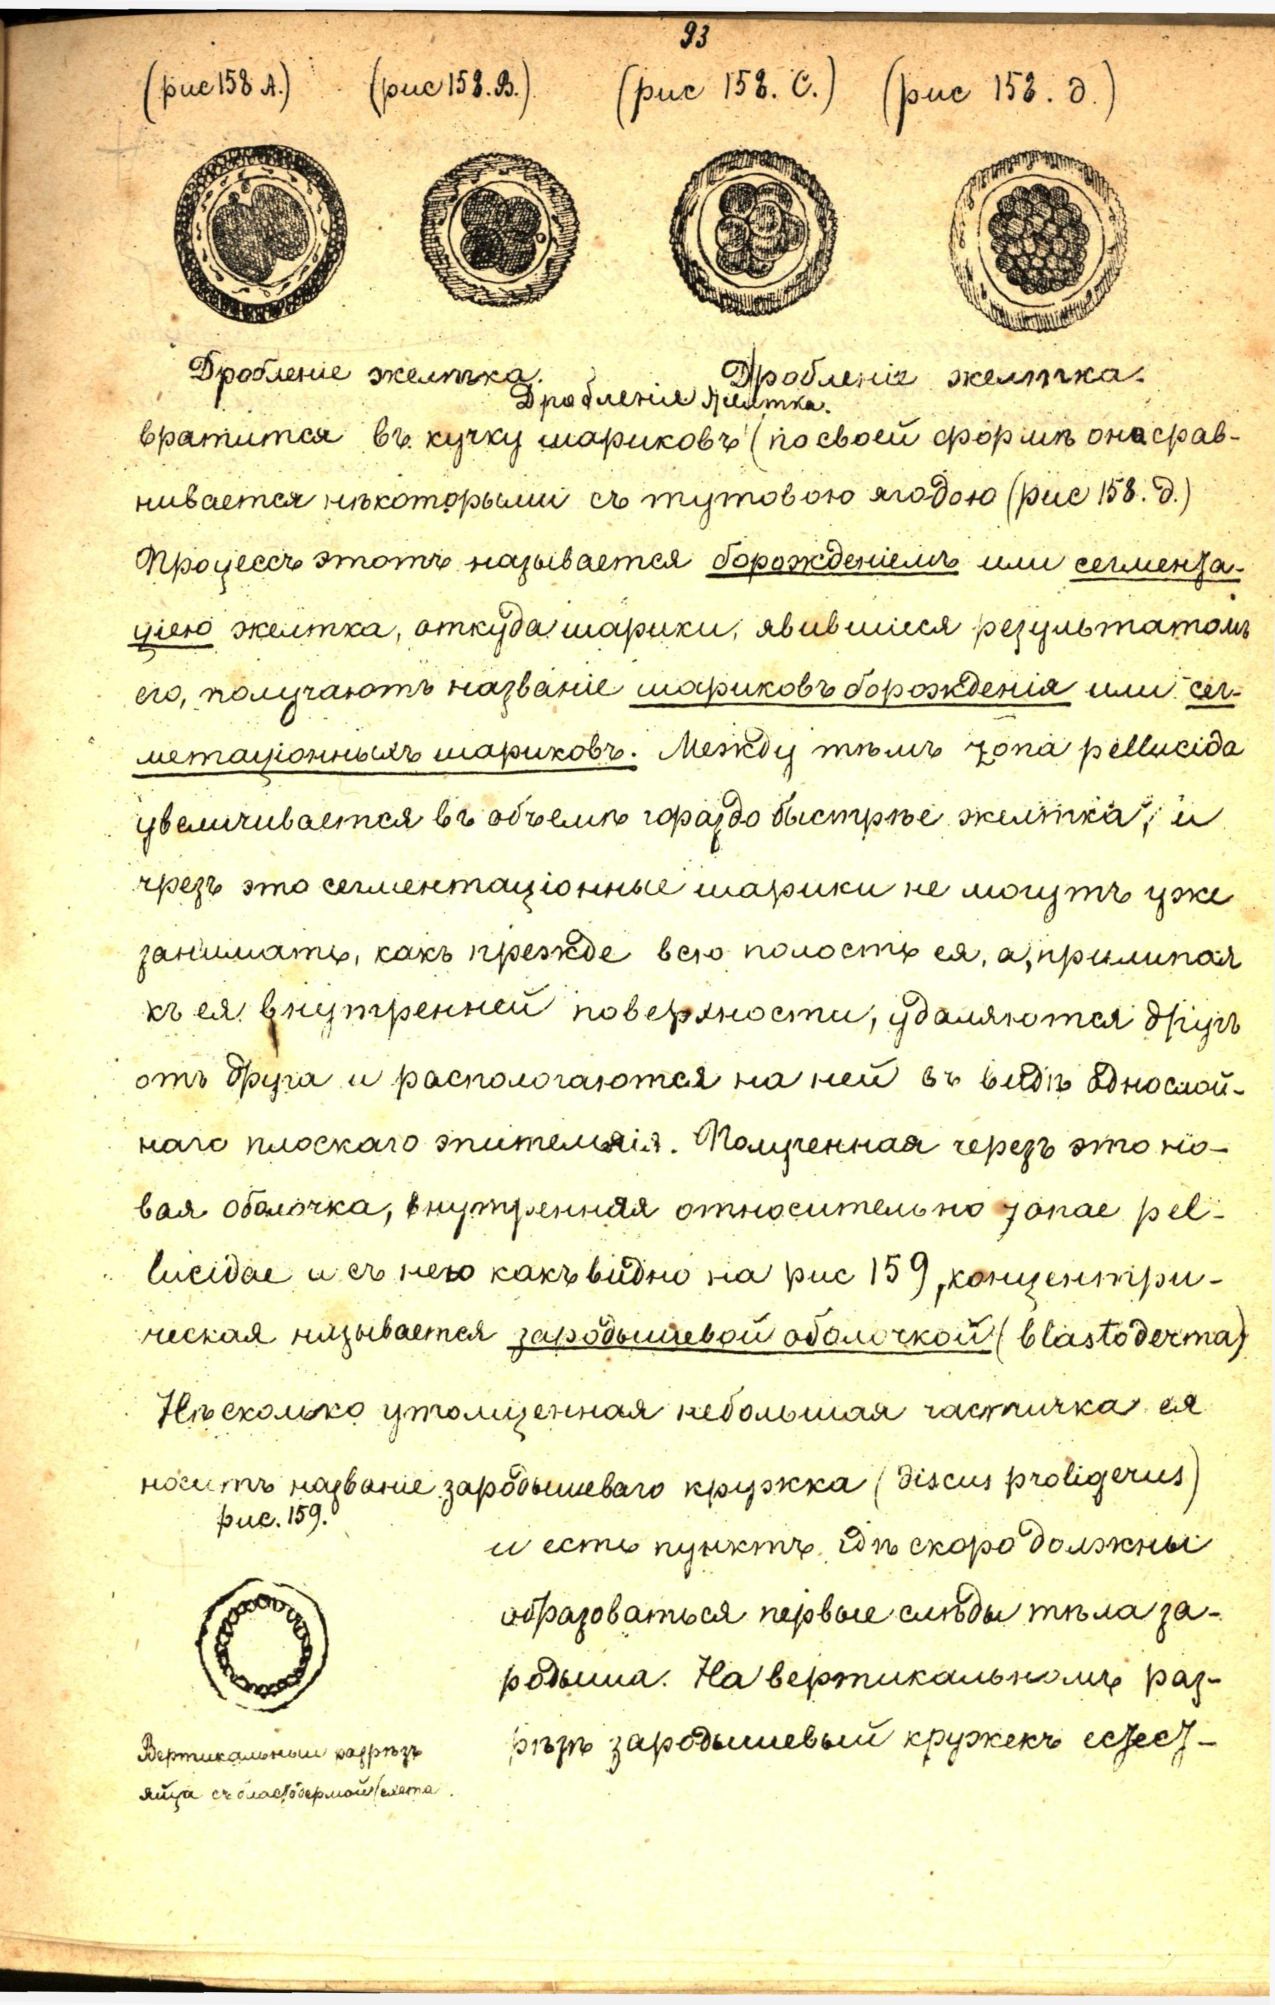 93
(рис 158 А.) (рис 158. В.) (рис 158. С.) (рис 158. д.)
Дробленіе желтка. Дробленіе желтка.
Дробленіе желтка.
вратится въ кучку шариковъ (по своей формѣ она срав-
нивается нѣкоторыми съ тутовою ягодою (рис 158. д.)
Процессъ этотъ называется борожденіемъ или сегмента-
ціею желтка, откуда шарики, явившіеся результатомъ
его, получаютъ названіе шариковъ борожденія или сег-
метаціонныхъ шариковъ. Между тѣмъ zona pellucida
увеличивается въ объемѣ гораздо быстрѣе желтка, и
чрезъ это сегментаціонные шарики не могутъ уже
занимать, какъ прежде всю полость ея, а, прилипая
къ ея внутренней поверхности, удаляются другъ
отъ друга и распологаются на ней въ видѣ однослой-
наго плоскаго эпителія. Полученная черезъ это но-
вая оболочка, внутренняя относительно zonae pel-
lucidae и съ нею какъ видно на рис 159, концентри-
ческая называется зародышевой оболочкой (blastoderma)
Нѣсколько утолщенная небольшая частичка ея
носитъ названіе зародышеваго кружка (discus proligerus)
рис. 159.
и есть пунктъ гдѣ скоро должны
образоваться первые слѣды тѣла за-
родыша. На вертикальномъ раз-
рѣзѣ зародышевый кружекъ
Вертикальный разрѣзъ
яйца съ бластодермой